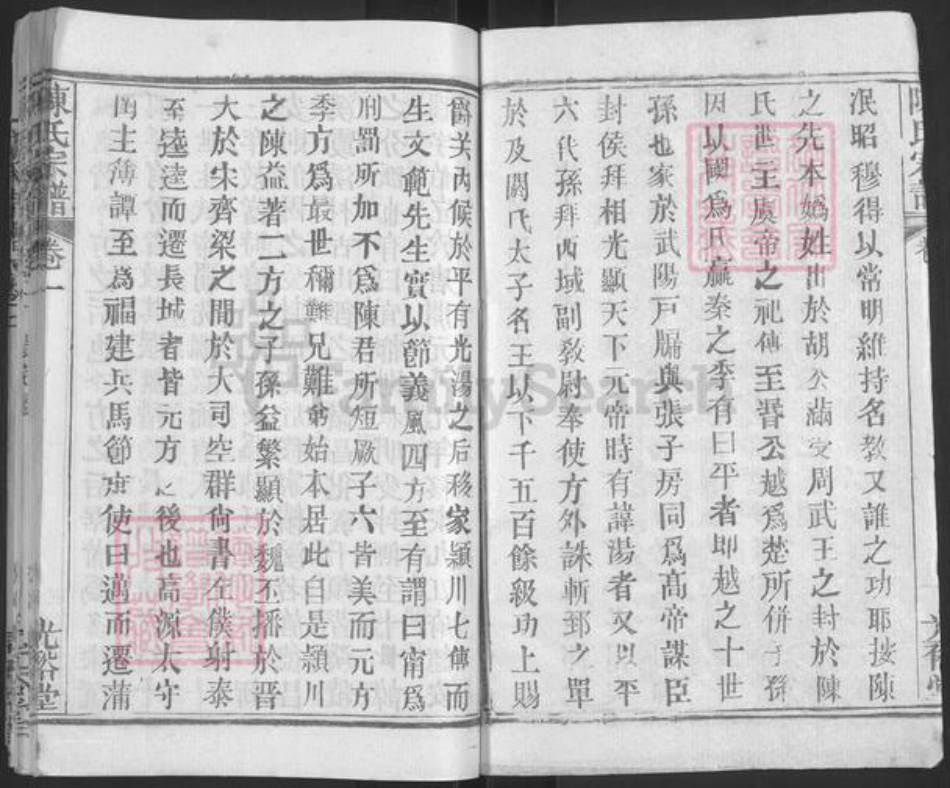 泯昭穆得以常明維持名敎又誰之功耶按陳
之先本嬀姓出於胡公滿受周武王之封於陳
氏世主虞帝之祀傳至晋公越爲楚所併子孫
因以國爲氏嬴秦之季有曰平者即越之十世
孫也家於武陽戸牖與張子房同爲髙帝謀臣
封侯拜相光顯天下元帝時有諱湯者又以平
六代孫拜西域副敎尉奉使方外誅斬郅之單
於及閼氏太子名王以下千五百餘級功上賜
爵关内候於平有光湯之后移家潁川七傳而
生文範先生實以節義風四方至有謂曰甯爲
刑罰所加不爲陳君所短厥子六皆美而元方
季方爲最世稱難兄難弟始本居此自是潁川
之陳益著二方之子孫益繁顯於魏丕播於晋
大於宋齊梁之間於大司空群尙書左僕射泰
至逵逵而遷長城者皆元方之後也高源太守
主薄譚至爲福建兵馬節度使曰邁而遷蒲
陳氏宗譜
卷一
光裕堂
FamilySearch